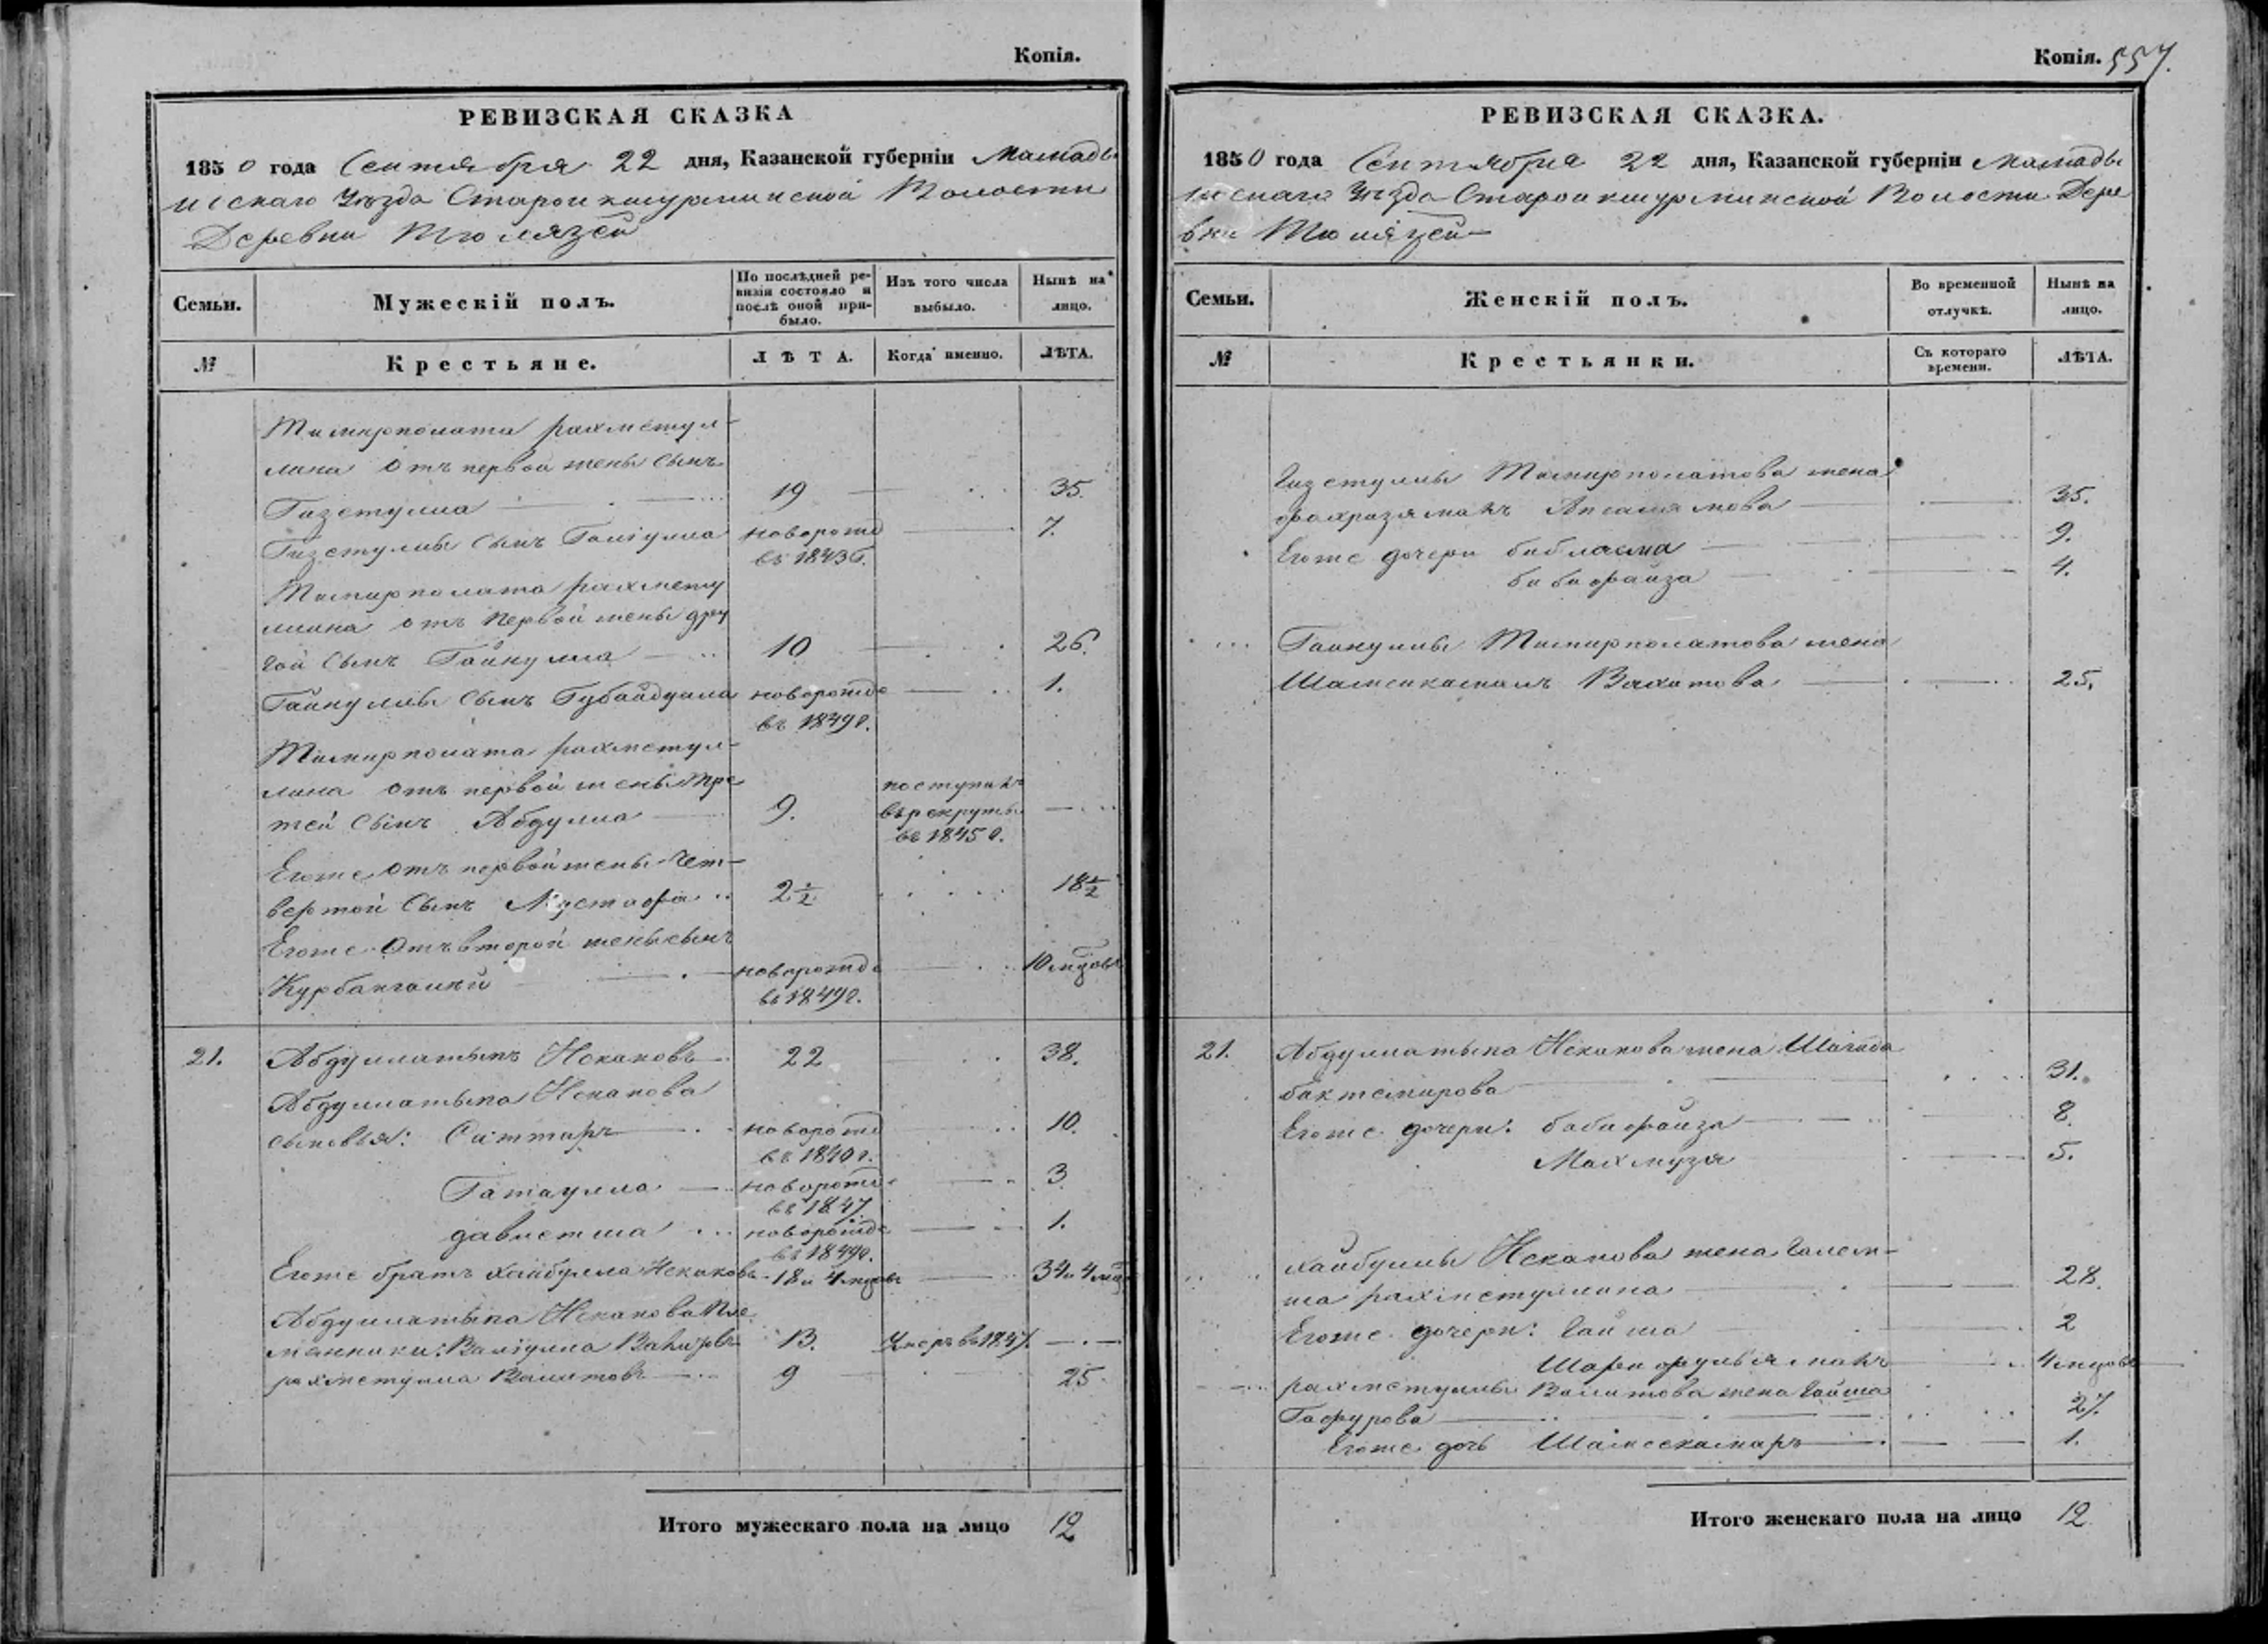 Копія.
РЕВИЗСКАЯ СКАЗКА
1850 года Сентября 22 дня, Казанской губерніи Мамады
шскаго Уѣзда Старой икшурминской Волости
Деревни Тюлязей
Семьи.
Мужескій полъ.
По послѣдней ре-
визіи состояло и
послѣ оной при-
было.
Изъ того числа
выбыло.
Нынѣ на
лицо.
№
Крестьяне.
ЛѢТА.
Когда именно.
ЛѢТА.
Тимирполата рахметул-
лина отъ первой жены сынъ
Гизетулла 19 35.
Гизетуллы сынъ Галіулла новорожд 7.
въ 1843 г.
Тимирполата рахмету
ллина отъ первой жены дру
гой сынъ Гайнулла 10 26.
Гайнуллы сынъ Губайдулла новорожде 1.
въ 1849 г.
Тимирполата рахметул-
лина отъ первой жены тре
тей сынъ Абдулла 9. поступилъ
в рекруты
въ 1845 г.
Егоже отъ первой жены чет-
вертой сынъ Мустафа 2 1/2 18 1/2
Егоже отъ второй жены сынъ
Курбангалий новорожде 10 мцовъ
въ 1849 г.
21. Абдуллатыпъ Искаковъ 22 38.
Абдуллатыпа Искакова
сыновья: Саттаръ новорожд 10.
въ 1840 г.
Гатаулла новорожде 3
въ 1847
давлетша новорожде 1.
въ 1849 г.
Егоже братъ Хайбулла Искаковъ 18 и 4 мцовъ 34 и 4 мц
Абдуллатыпа Искакова пле
мянники: Валіулла 13. Умеръ въ 1847.
рахметулла Валитовъ 9 25
Итого мужескаго пола на лицо 12
Копія. 557.
РЕВИЗСКАЯ СКАЗКА.
1850 года Сентября 22 дня, Казанской губерніи Мамады
шскаго Уѣзда Старой икшурминской Волости Дере
вни Тюлязей
Семьи.
Женскій полъ.
Во временной
отлучкѣ.
Нынѣ на
лицо.
№
Крестьянки.
Съ котораго
времени.
ЛѢТА.
Гизетуллы Тимирполатова жена
фахразяманъ Апсалямова 35.
Егоже дочери 9.
бибифайза 4.
Гайнуллы Тимирполатова жена
Шамсикамалъ Вахитова 25.
21. Абдуллатыпа Искакова жена
бактемирова 31.
Егоже дочери: бибифайза 8.
Махмузя 5.
Хайбуллы Искакова жена Галем-
ша рахметуллина 28.
Егоже дочери: Гайша 2
4 мцовъ
рахметуллы Валитова жена Гайша
Гафурова 27.
Егоже дочь Шамсекамаръ 1.
Итого женскаго пола на лицо 12